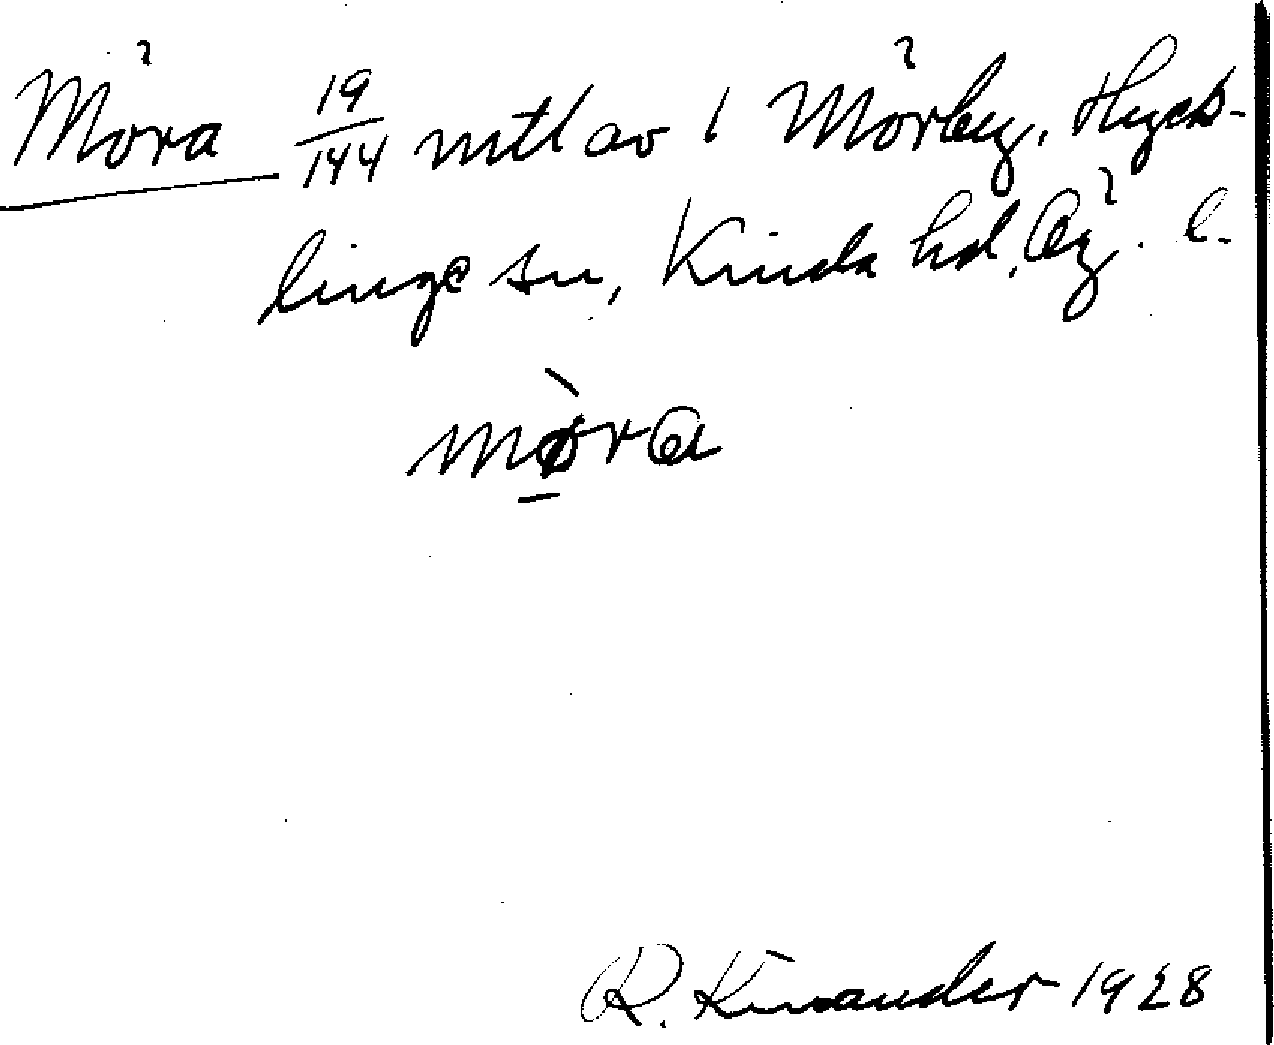 Möra 19/144 mtl av 1 Mörby, Hyck-
linge sn, Kinda hd, Ög. l.
mørɑ
R. Kinander 1928